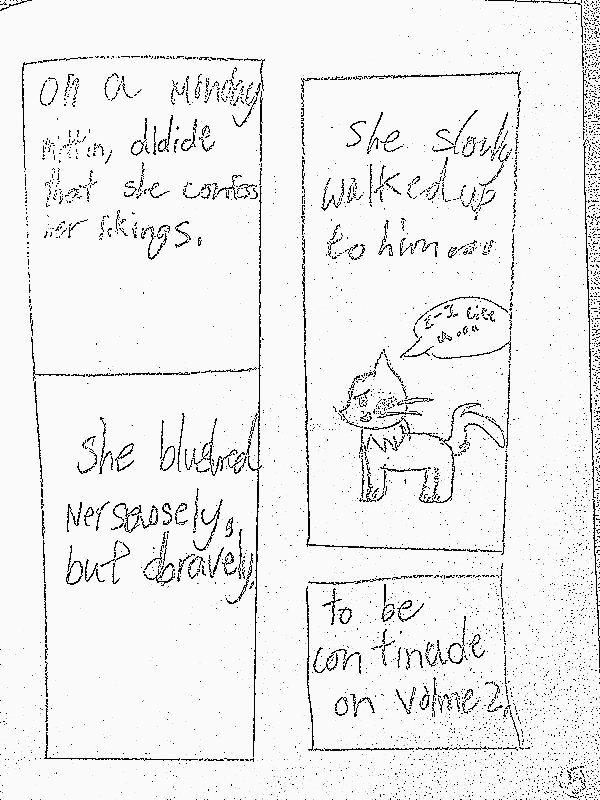 on a Monday
mittin, didide
that she confess
her likings.
She blushed
Nersewosely,
but bravely.
She slowly
walked up
to him....
I-I like
to be
continude
on volme 2.